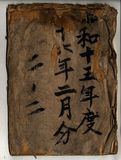 昭和十五年度
十六年二月分
二ノ二